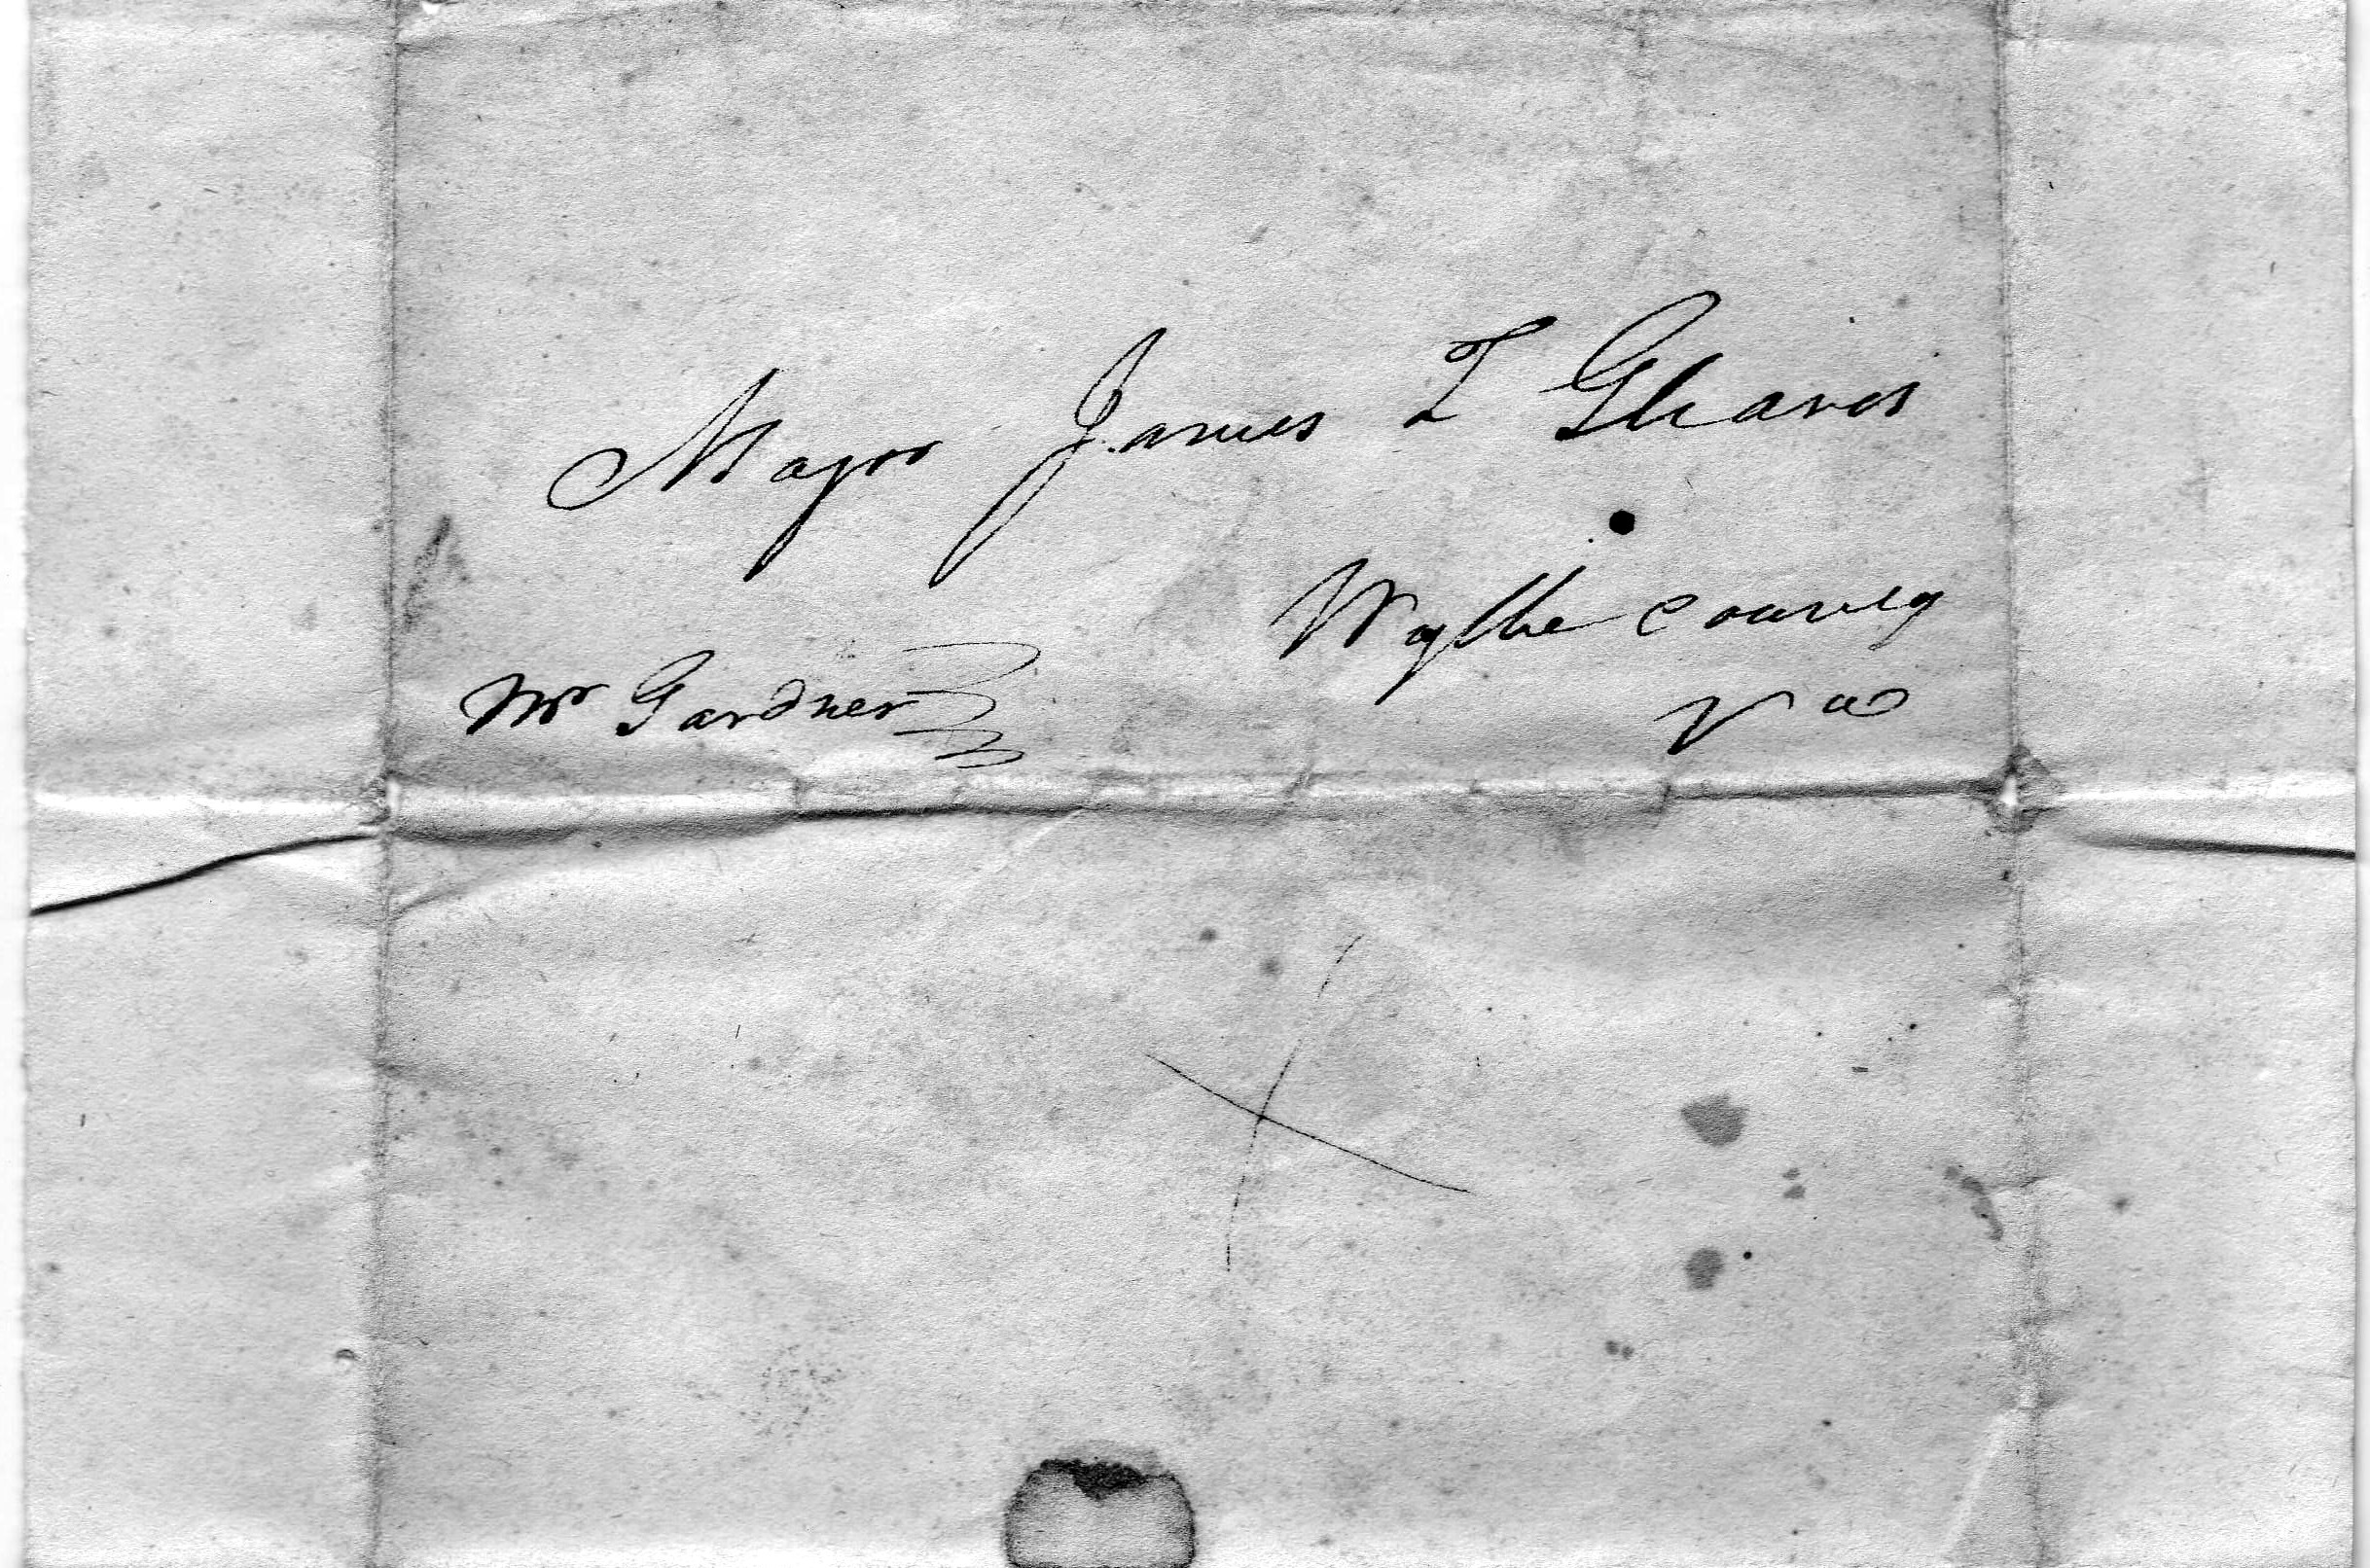 Major James T Gleaves
Wythe County
Mr Gardner
Va